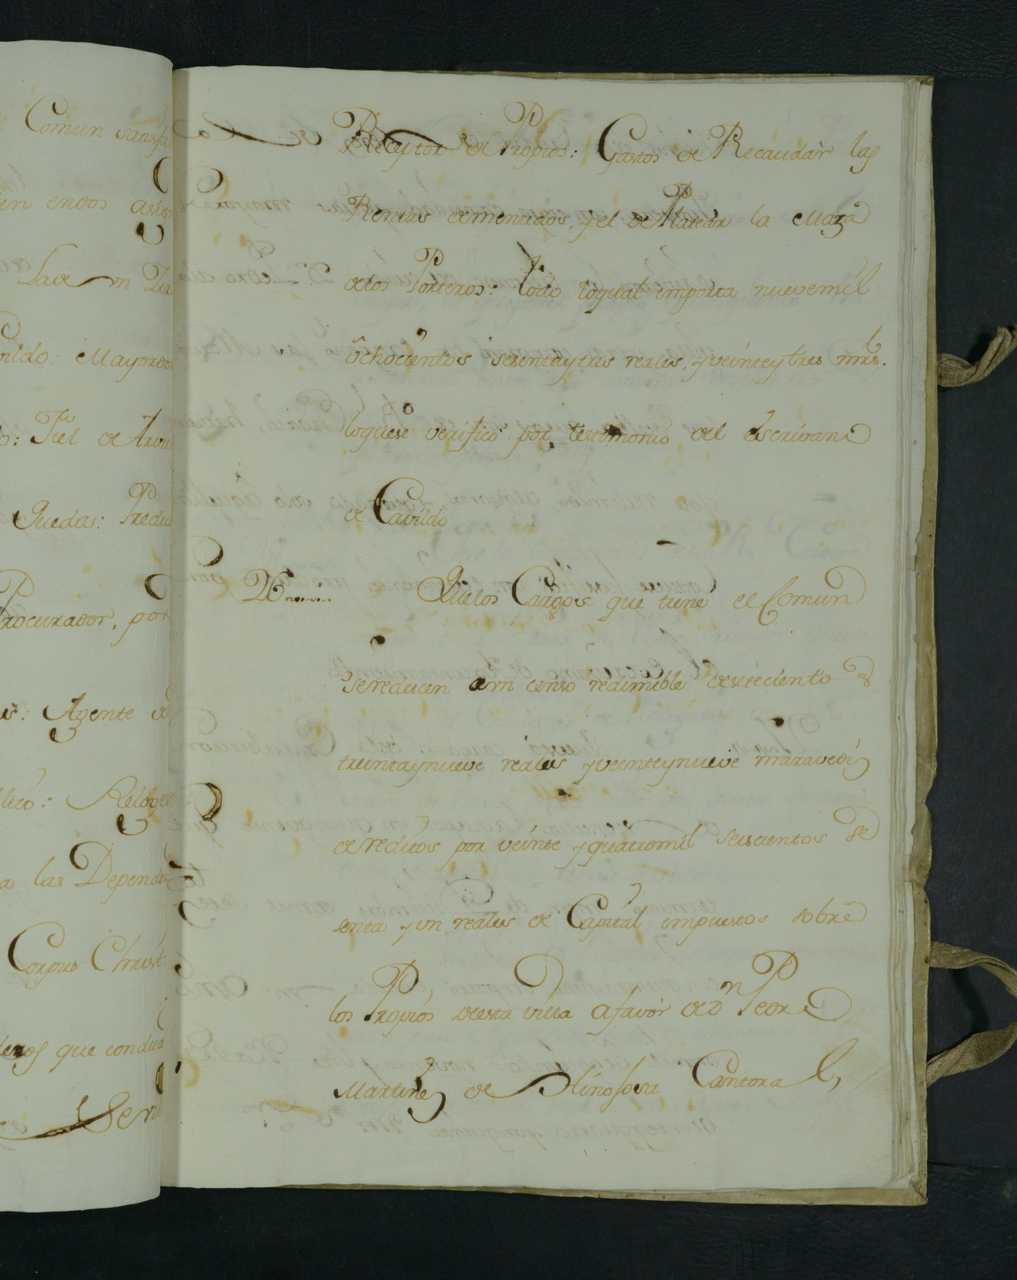 Comun
en encas
nido: Mayor
o: Fiel de
Quedas:
Procurador, por
s: Agente
lico: Relox
a las Depend
Corpus Christ
que condu
Ser
Receptor de Propios: Gastos de Recaudar las
Rentas arrendados, y el de Platear la Maza
de los Porteros: todo loqual importa nuevemil
Ôchocientos setentaytres reales, y veinteytres mrs.
loquese verificó por testimonio del Escrivano
de Cavildo
Quelos Cargos que tiene el Comun
sereducen a un censo redimible desetecientos
treintaynueve reales y veinteynueve maravedis
de reditos por veinte y quatromil seiscientos se
senta y un reales de Capital, impuestos sobre
los Propios deesta villa afavor de Dn. Pedro
Martinez de Hinojosa Cantoral,